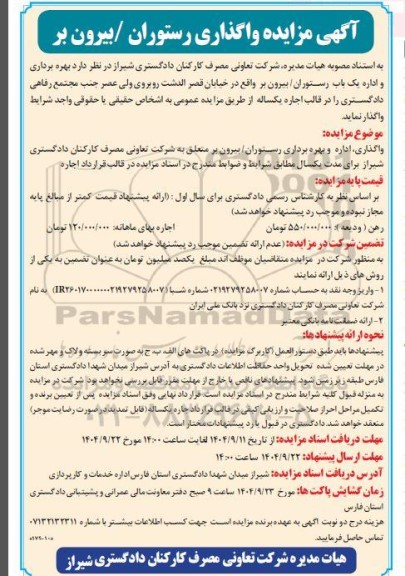 آگهی مزایده واگذاری رستوران /بیرون بر
به استناد مصوبه هیات مدیره، شرکت تعاونی مصرف کارکنان دادگستری شیراز در نظر دارد بهره برداری
و اداره یک باب رستوران/ بیرون بر واقع در خیابان قصر الدشت روبروی ولی عصر جنب مجتمع رفاهی
دادگستری را در قالب اجاره یکساله از طریق مزایده عمومی به اشخاص حقیقی یا حقوقی واجد شرایط
واگذار نماید.
موضوع مزایده:
واگذاری، اداره و بهره برداری رستوران/ بیرون بر متعلق به شرکت تعاونی مصرف کارکنان دادگستری
شیراز برای مدت یکسال مطابق شرایط و ضوابط مندرج در اسناد مزایده در قالب قرارداد اجاره
قیمت پایه مزایده:
بر اساس نظریه کارشناس رسمی دادگستری برای سال اول : (ارائه پیشنهاد قیمت کمتر از مبالغ پایه
مجاز نبوده و موجب رد پیشنهاد خواهد شد)
رهن (ودیعه): ۵۵۰/۰۰۰/۰۰۰ تومان اجاره بهای ماهانه: ۱۲۰/۰۰۰/۰۰۰ تومان
تضمین شرکت در مزایده: (عدم ارائه تضمین موجب رد پیشنهاد خواهد شد)
به منظور شرکت در مزایده متقاضیان موظف اند مبلغ یکصد میلیون تومان به عنوان تضمین به یکی از
روش های ذیل ارائه نمایند
۱- واریز وجه نقد به حساب شماره ۰۲۱۹۲۷۹۲۵۸۰۰۷ شماره شبا به نام
شرکت تعاونی مصرف کارکنان دادگستری نزد بانک ملی ایران
۲- ارائه ضمانت نامه بانکی معتبر
نحوه ارائه پیشنهادها:
پیشنهادها باید طبق دستورالعمل (کاربرگ مزایده) در پاکت های الف، ب، ج به صورت سربسته و لاک و مهر شده
در مهلت تعیین شده تحویل واحد حفاظت اطلاعات دادگستری به آدرس شیراز میدان شهدا دادگستری استان
فارس طبقه زیر زمین شود. پیشنهادهای ناقص یا خارج از مهلت مقرر قابل بررسی نخواهد بود. شرکت در مزایده
به منزله قبول کلیه شرایط مندرج در اسناد مزایده است. قرارداد نهایی وفق اسناد مزایده پس از تعیین برنده و
تکمیل مراحل احراز صلاحیت و ارزیابی کیفی در قالب قرارداد اجاره یکساله (قابل تمدید در صورت رضایت موجر)
منعقد خواهد شد. دادگستری در قبول یا رد پیشنهادات مختار است.
مهلت دریافت اسناد مزایده: از تاریخ ۱۴۰۴/۹/۱۱ لغایت ساعت ۱۴:۰۰ مورخ ۱۴۰۴/۹/۲۲
مهلت ارسال پیشنهاد: ۱۴۰۴/۹/۲۲ ساعت ۱۴:۰۰
آدرس دریافت اسناد مزایده: شیراز میدان شهدا دادگستری استان فارس اداره خدمات و کارپردازی
زمان گشایش پاکت ها: مورخ ۱۴۰۴/۹/۲۳ ساعت ۹ صبح دفتر معاونت مالی عمرانی و پشتیبانی دادگستری
استان فارس
هزینه درج دو نوبت آگهی به عهده برنده مزایده است. جهت کسب اطلاعات بیشتر با شماره ۰۷۱۳۲۱۳۲۳۱۱
تماس حاصل فرمایید.
هیات مدیره شرکت تعاونی مصرف کارکنان دادگستری شیراز
ParsNamadData